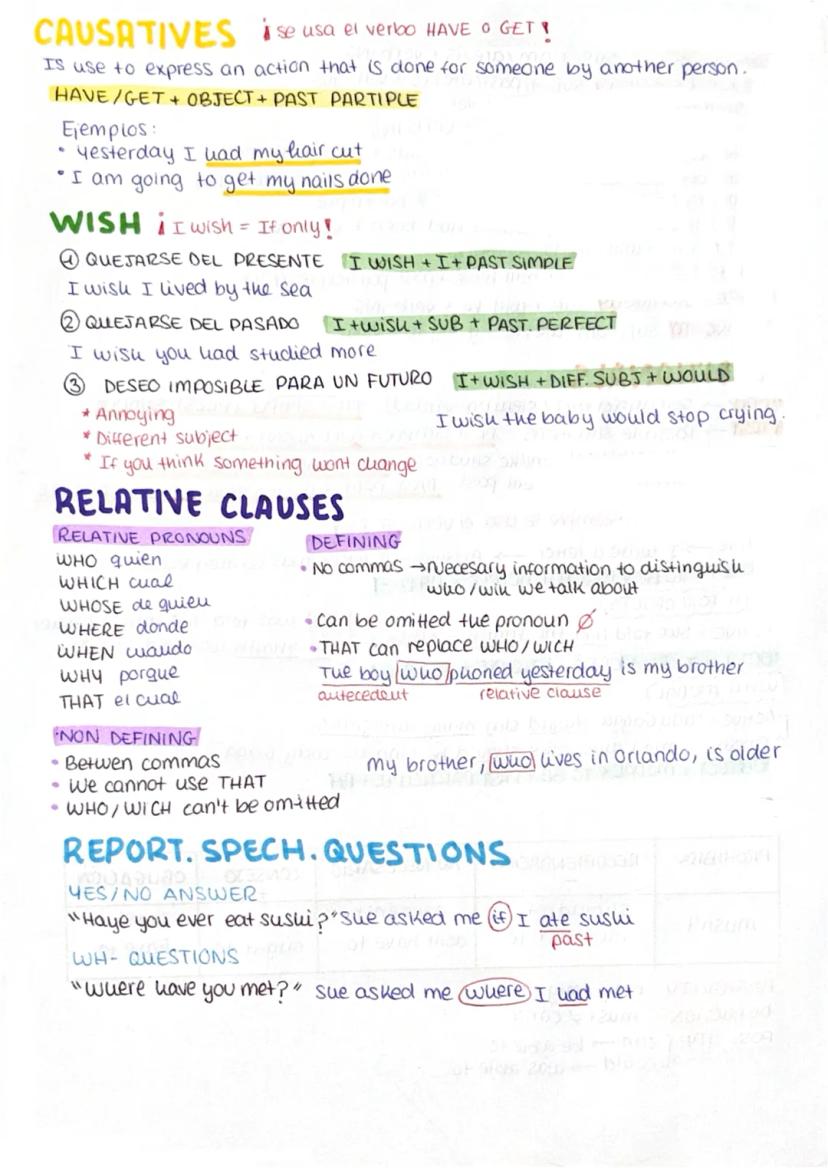 CAUSATIVES ¡se usa el verbo HAVE o GET!
Is use to express an action that is done for someone by another person.
HAVE/GET + OBJECT + PAST PARTIPLE
Ejemplos:
• Yesterday I had my hair cut
• I am going to get my nails done
WISH ¡I wish = If only!
① QUEJARSE DEL PRESENTE I WISH + I + PAST SIMPLE
I wish I lived by the sea
② QUEJARSE DEL PASADO I + WISH + SUB + PAST. PERFECT
I wish you had studied more
③ DESEO IMPOSIBLE PARA UN FUTURO I + WISH + DIFF. SUBJ + WOULD
* Annoying
I wish the baby would stop crying.
* Different subject
* If you think something wont change
RELATIVE CLAUSES
RELATIVE PRONOUNS
WHO quien
WHICH cual
WHOSE de quien
WHERE donde
WHEN cuando
WHY porque
THAT el cual
DEFINING
• No commas → Necesary information to distinguish
who/wich we talk about
• Can be omitted the pronoun Ø
• THAT can replace WHO/WICH
The boy who phoned yesterday is my brother
antecedent relative clause
NON DEFINING
• Betwen commas
• We cannot use THAT
• WHO/WICH can't be omitted
my brother, who lives in Orlando, is older
REPORT. SPECH. QUESTIONS
YES/NO ANSWER
"Have you ever eat sushi?" She asked me if I ate sushi
past
WH- QUESTIONS
"Where have you met?" She asked me where I had met